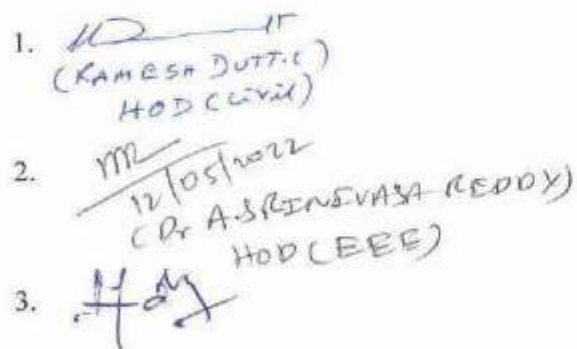 1.
(RAMESH DUTT.C)
HOD (Civil)
2.
12/05/2022
(Dr A.SRINIVASA REDDY)
HOD (EEE)
3.